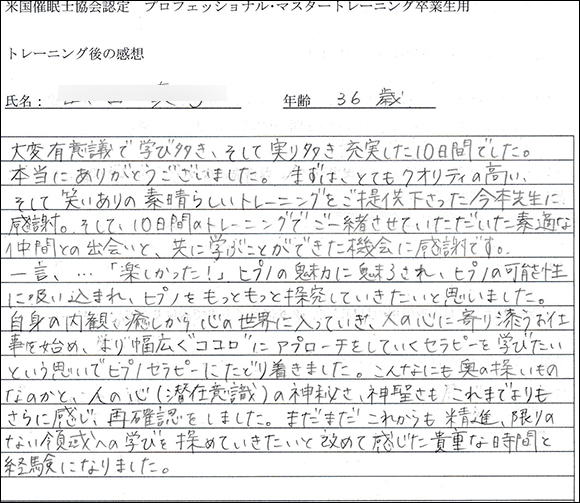 米国催眠士協会認定　プロフェッショナル・マスタートレーニング卒業生用
トレーニング後の感想
氏名：
年齢　36 歳
大変有意議で学び多き、そして実り多き充実した10日間でした。
本当にありがとうございました。まずは、とてもクオリティの高い、
そして笑いありの素晴らしいトレーニングをご提供下さった今本先生に
感謝。そして、10日間のトレーニングでご一緒させていただいた素適な
仲間との出会いと、共に学ぶことができた機会に感謝です。
一言、…「楽しかった！」ヒプノの魅力に魅了され、ヒプノの可能性
に吸い込まれ、ヒプノをもっともっと探究していきたいと思いました。
自身の内観、癒しから心の世界に入っていき、人の心に寄り添うお仕
事を始め、より幅広く"ココロ"にアプローチをしていくセラピーを学びたい
という思いでヒプノセラピーにたどり着きました。こんなにも奥の深いもの
なのかと、人の心(潜在意識)の神秘さ、神聖さも、これまでよりも
さらに感じ、再確認をしました。まだまだこれからも精進、限りの
ない領域への学びを深めていきたいと改めて感じた貴重な時間と
経験になりました。